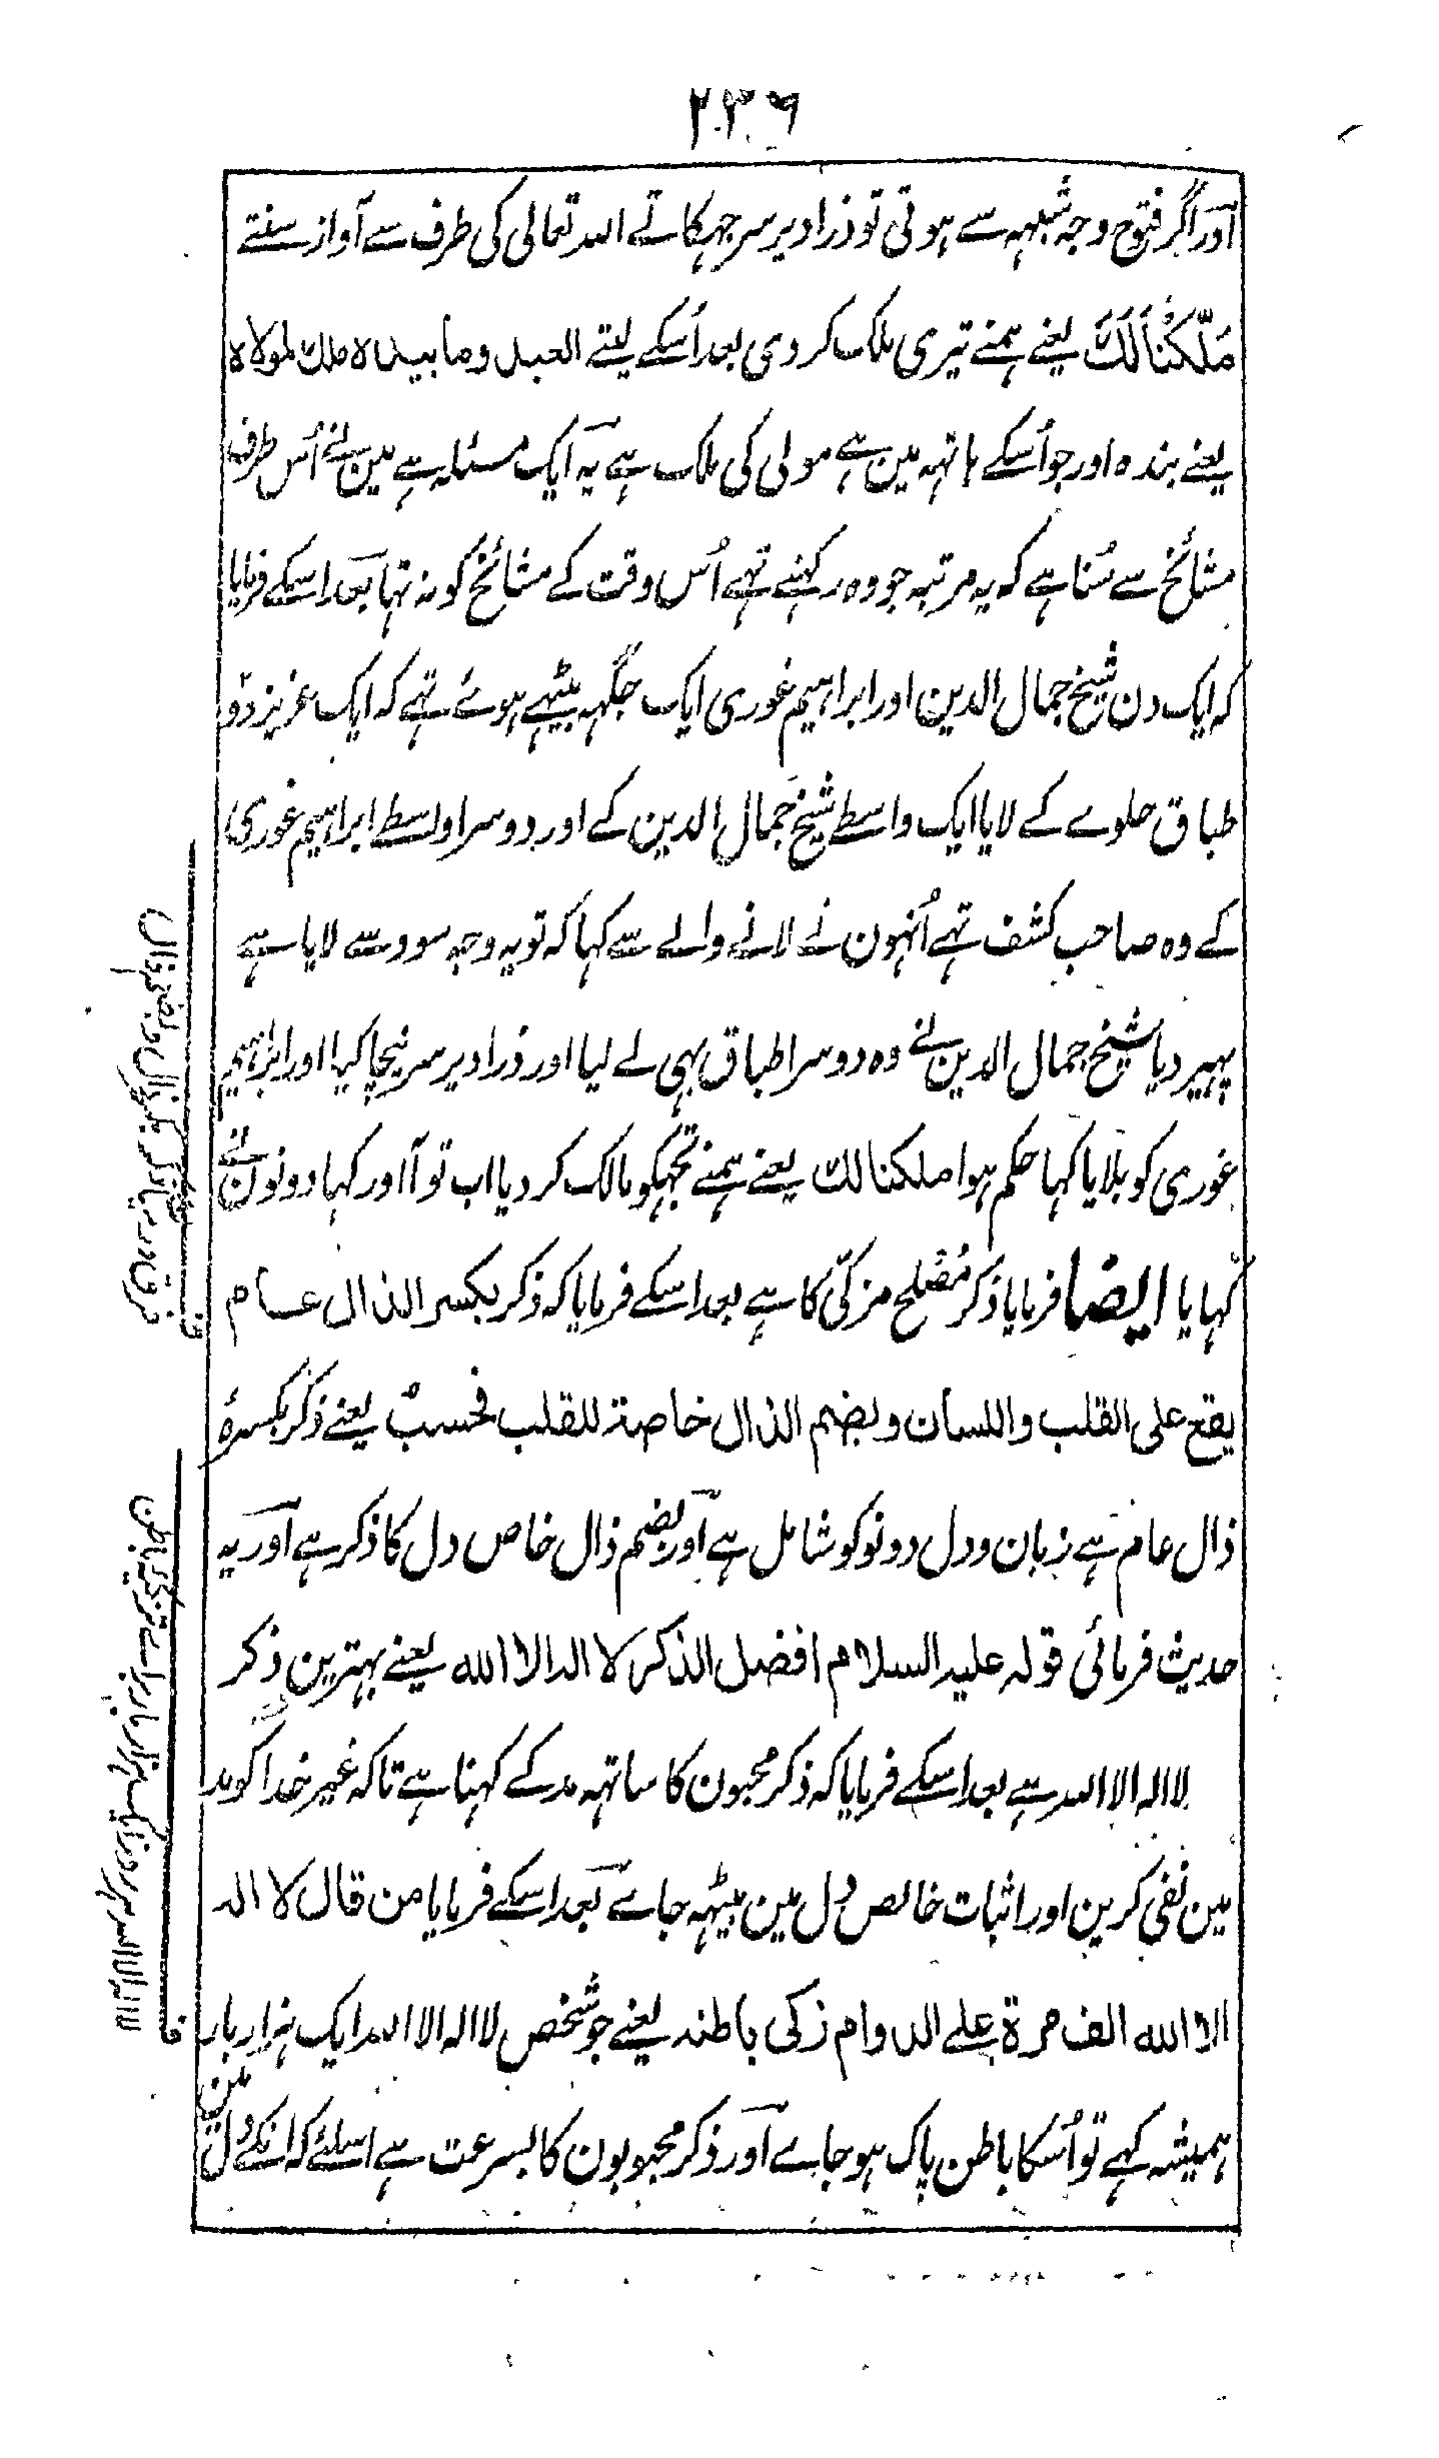 ۲۳۶
اور اگر فتوح وجہ شبہہ سے ہوتی تو ذرا دیر سر جہکاتے اللہ تعالی کی طرف سے آواز سنتے
مَلّکْنَا لَکَ یعنے ہمنے تیری ملک کر دی بعد اُسکے لیتے العبد وما بیدہ ملك لمولاہ
یعنے بندہ اور جو اُسکے ہاتہہ مین ہے مولی کی ملک ہے یہ ایک مسئلہ ہے مین نے اُس طرف
مشائخ سے سُنا ہے کہ یہ مرتبہ جو وہ رکہتے تہے اُس وقت کے مشائخ کو نہ تہا بعد اسکے فرمایا
کہ ایک دن شیخ جمال الدین اور ابراہیم غوری ایک جگہہ بیٹہے ہوئے تہے کہ ایک عزیز دو
طباق حلوے کے لایا ایک واسطے شیخ جمال الدین کے اور دوسرا واسطے ابراہیم غوری
کے وہ صاحب کشف تہے اُنہون نے لانے والے سے کہا کہ تو یہ وجہ سود سے لایا ہے
پہیر دیا شیخ جمال الدین نے وہ دوسرا طباق بہی لے لیا اور ذرا دیر سر نیچا کیا اور ابراہیم
غوری کو بلایا کہا حکم ہوا ملکنا لك یعنے ہمنے تجہکو مالک کر دیا اب تو آ اور کہا دونون نے
کہایا ایضا فرمایا ذکر مُصْلح مزکّی کا ہے بعد اسکے فرمایا کہ ذکر بکسر الذال عام
یقع علی القلب واللسان وبضم الذال خاصة للقلب فحسبْ یعنے ذکر بکسرۂ
ذال عام ہے زبان و دل دونو کو شامل ہے اور بضم ذال خاص دل کا ذکر ہے اور یہ
حدیث فرمائی قولہ علیہ السلام افضل الذکر لا الہ الا اللہ یعنے بہترین ذکر
لا الہ الا اللہ ہے بعد اسکے فرمایا کہ ذکر محبون کا ساتہہ مد کے کہنا ہے تاکہ غیر خدا کو مد
مین نفی کرین اور اثبات خالص دل مین بیٹہہ جاے بعد اسکے فرمایا من قال لا الہ
الا اللہ الف مرة علے الدوام زکی باطنہ یعنے جو شخص لا الہ الا اللہ ایک ہزار بار
ہمیشہ کہے تو اُسکا باطن پاک ہو جاے اور ذکر محبوبون کا بسرعت ہے اسلئے کہ انکے دل مین
فرق درمیان ذکر بکسر ذال و بضم ذال
لا الہ الا اللہ ہر روز ایک ہزار بار براے تزکیہ باطن